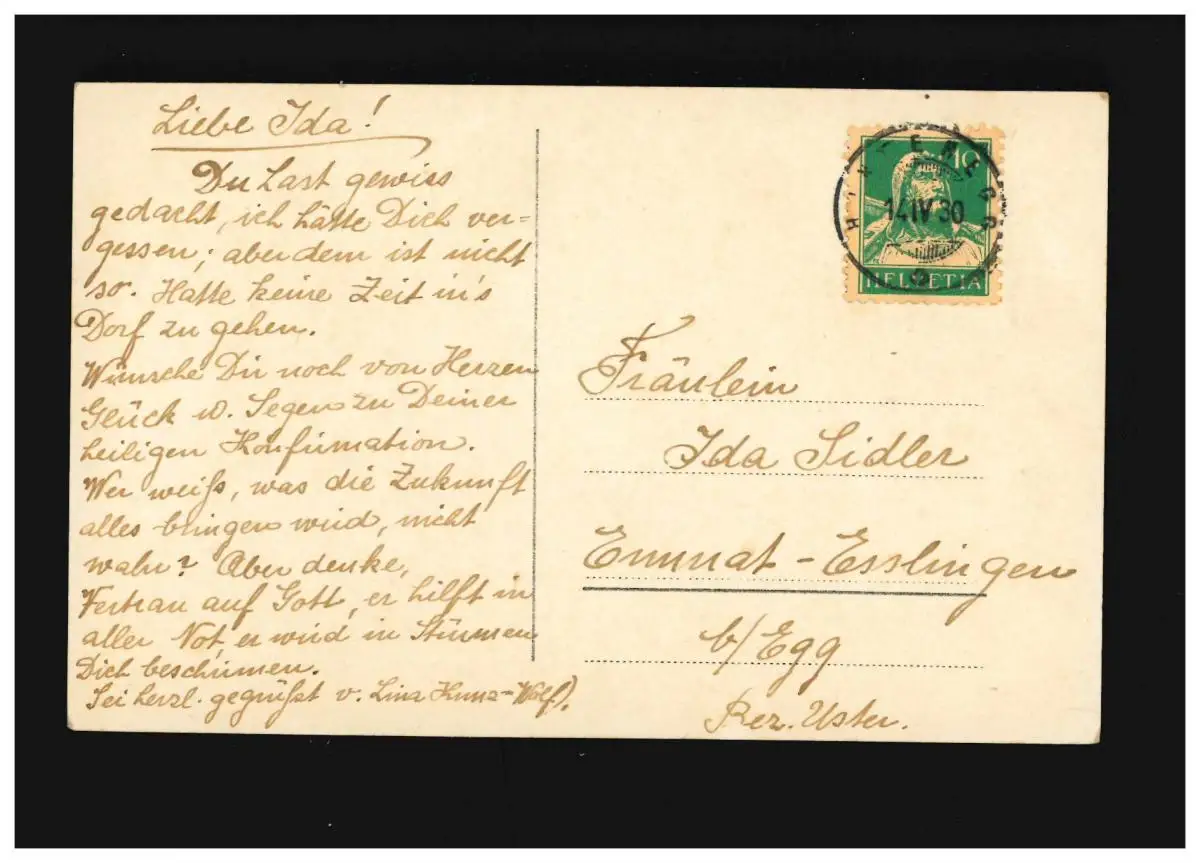 Liebe Ida!
Du hast gewiss
gedacht, ich hätte Dich ver=
gessen; aber dem ist nicht
so. Hatte keine Zeit in's
Dorf zu gehen.
Wünsche Dir noch von Herzen
Glück u. Segen zu Deiner
heiligen Konfirmation.
Wer weiß, was die Zukunft
alles bringen wird, nicht
wahr? Aber denke,
Vertrau auf Gott, er hilft in
aller Not, er wird in Stürmen
Dich beschirmen.
Sei herzl. gegrüßt v. Lina Kunz=Wolf).
HINTEREGG
14 IV 30
10
HELVETIA
Fräulein
Ida Sidler
Emmat-Esslingen
b/Egg
Bez. Uster.